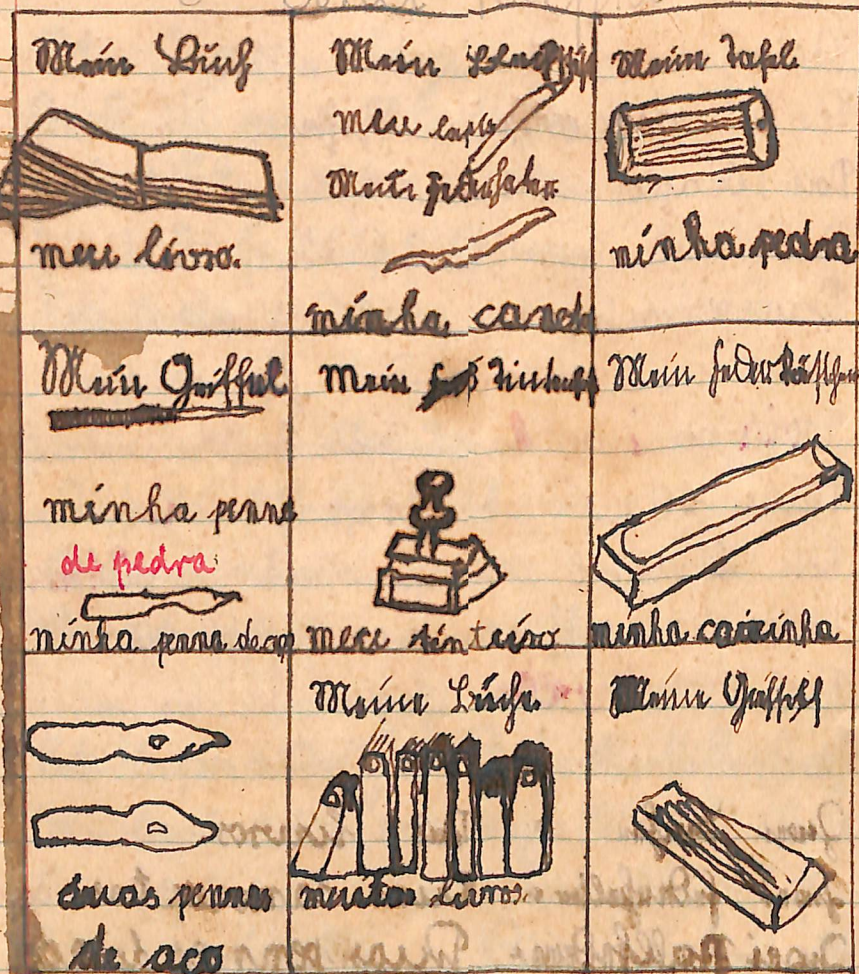 Mein Buch
meu livro.
Mein Bleistift
meu lapis
Mein Federhalter
minha caneta
Meine Tafel
minha pedra
Mein Griffel
minha penna
de pedra
minha penna de aço
Mein Tintenfaß
meu tinteiro
Mein Federkästchen
minha caixinha
duas pennas
de aço
Meine Bücher
muitos livros.
Meine Griffel